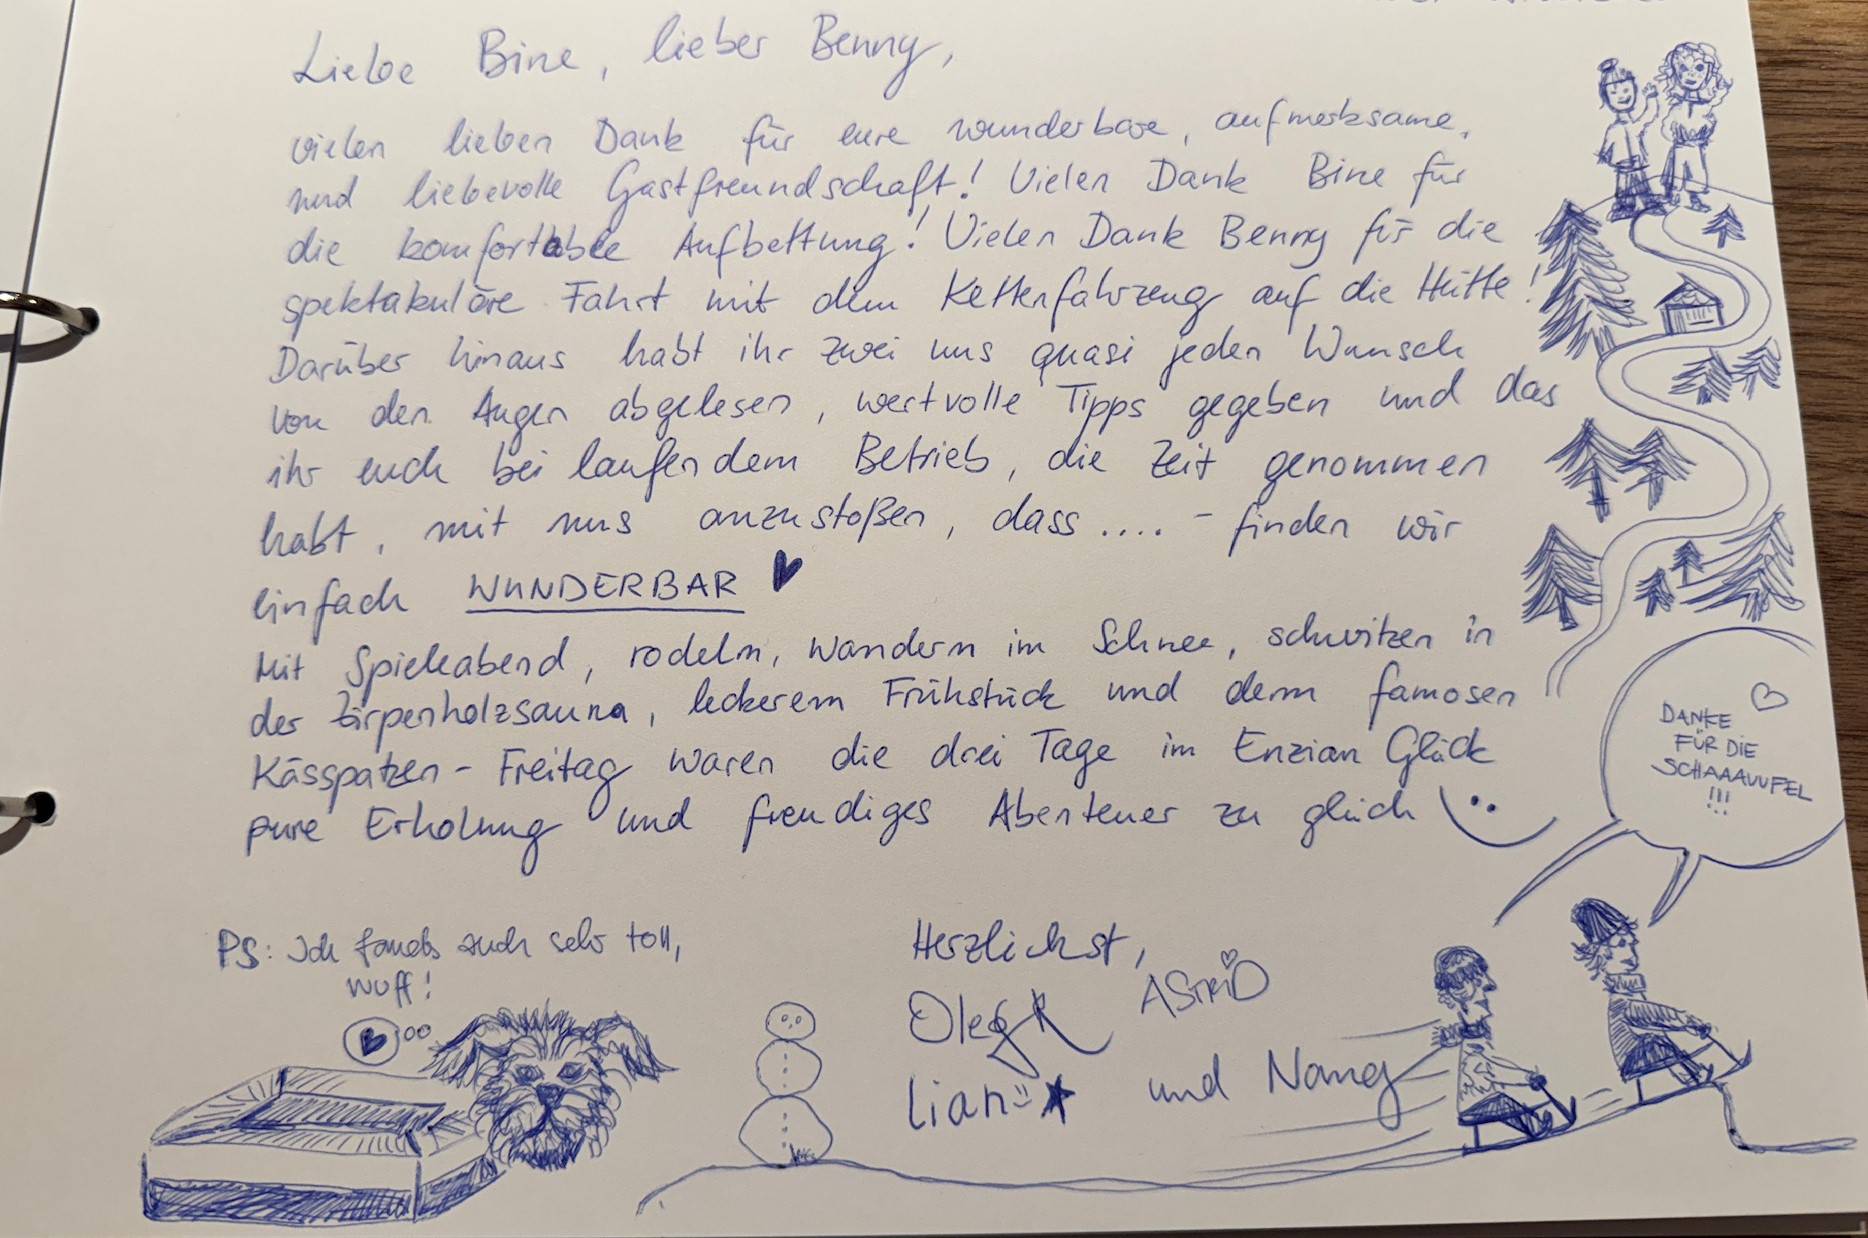 Liebe Bine, lieber Benny,
vielen lieben Dank für eure wunderbare, aufmerksame,
und liebevolle Gastfreundschaft! Vielen Dank Bine für
die komfortable Aufbettung! Vielen Dank Benny für die
spektakuläre Fahrt mit dem Kettenfahrzeug auf die Hütte!
Darüber hinaus habt ihr zwei uns quasi jeden Wunsch
von den Augen abgelesen, wertvolle Tipps gegeben und das
ihr euch bei laufendem Betrieb, die Zeit genommen
habt, mit uns anzustoßen, dass .... - finden wir
einfach WUNDERBAR
Mit Spieleabend, rodeln, wandern im Schnee, schwitzen in
der Zirpenholzsauna, leckerem Frühstück und dem famosen
Kässpatzen-Freitag waren die drei Tage im Enzian Glück
pure Erholung und freudiges Abenteuer zu gleich
DANKE
FÜR DIE
SCHAAAUUFEL
!!!
PS: Ich fands auch sehr toll,
wuff!
Herzlichst,
Oleg ASTRID
Lian und Nang